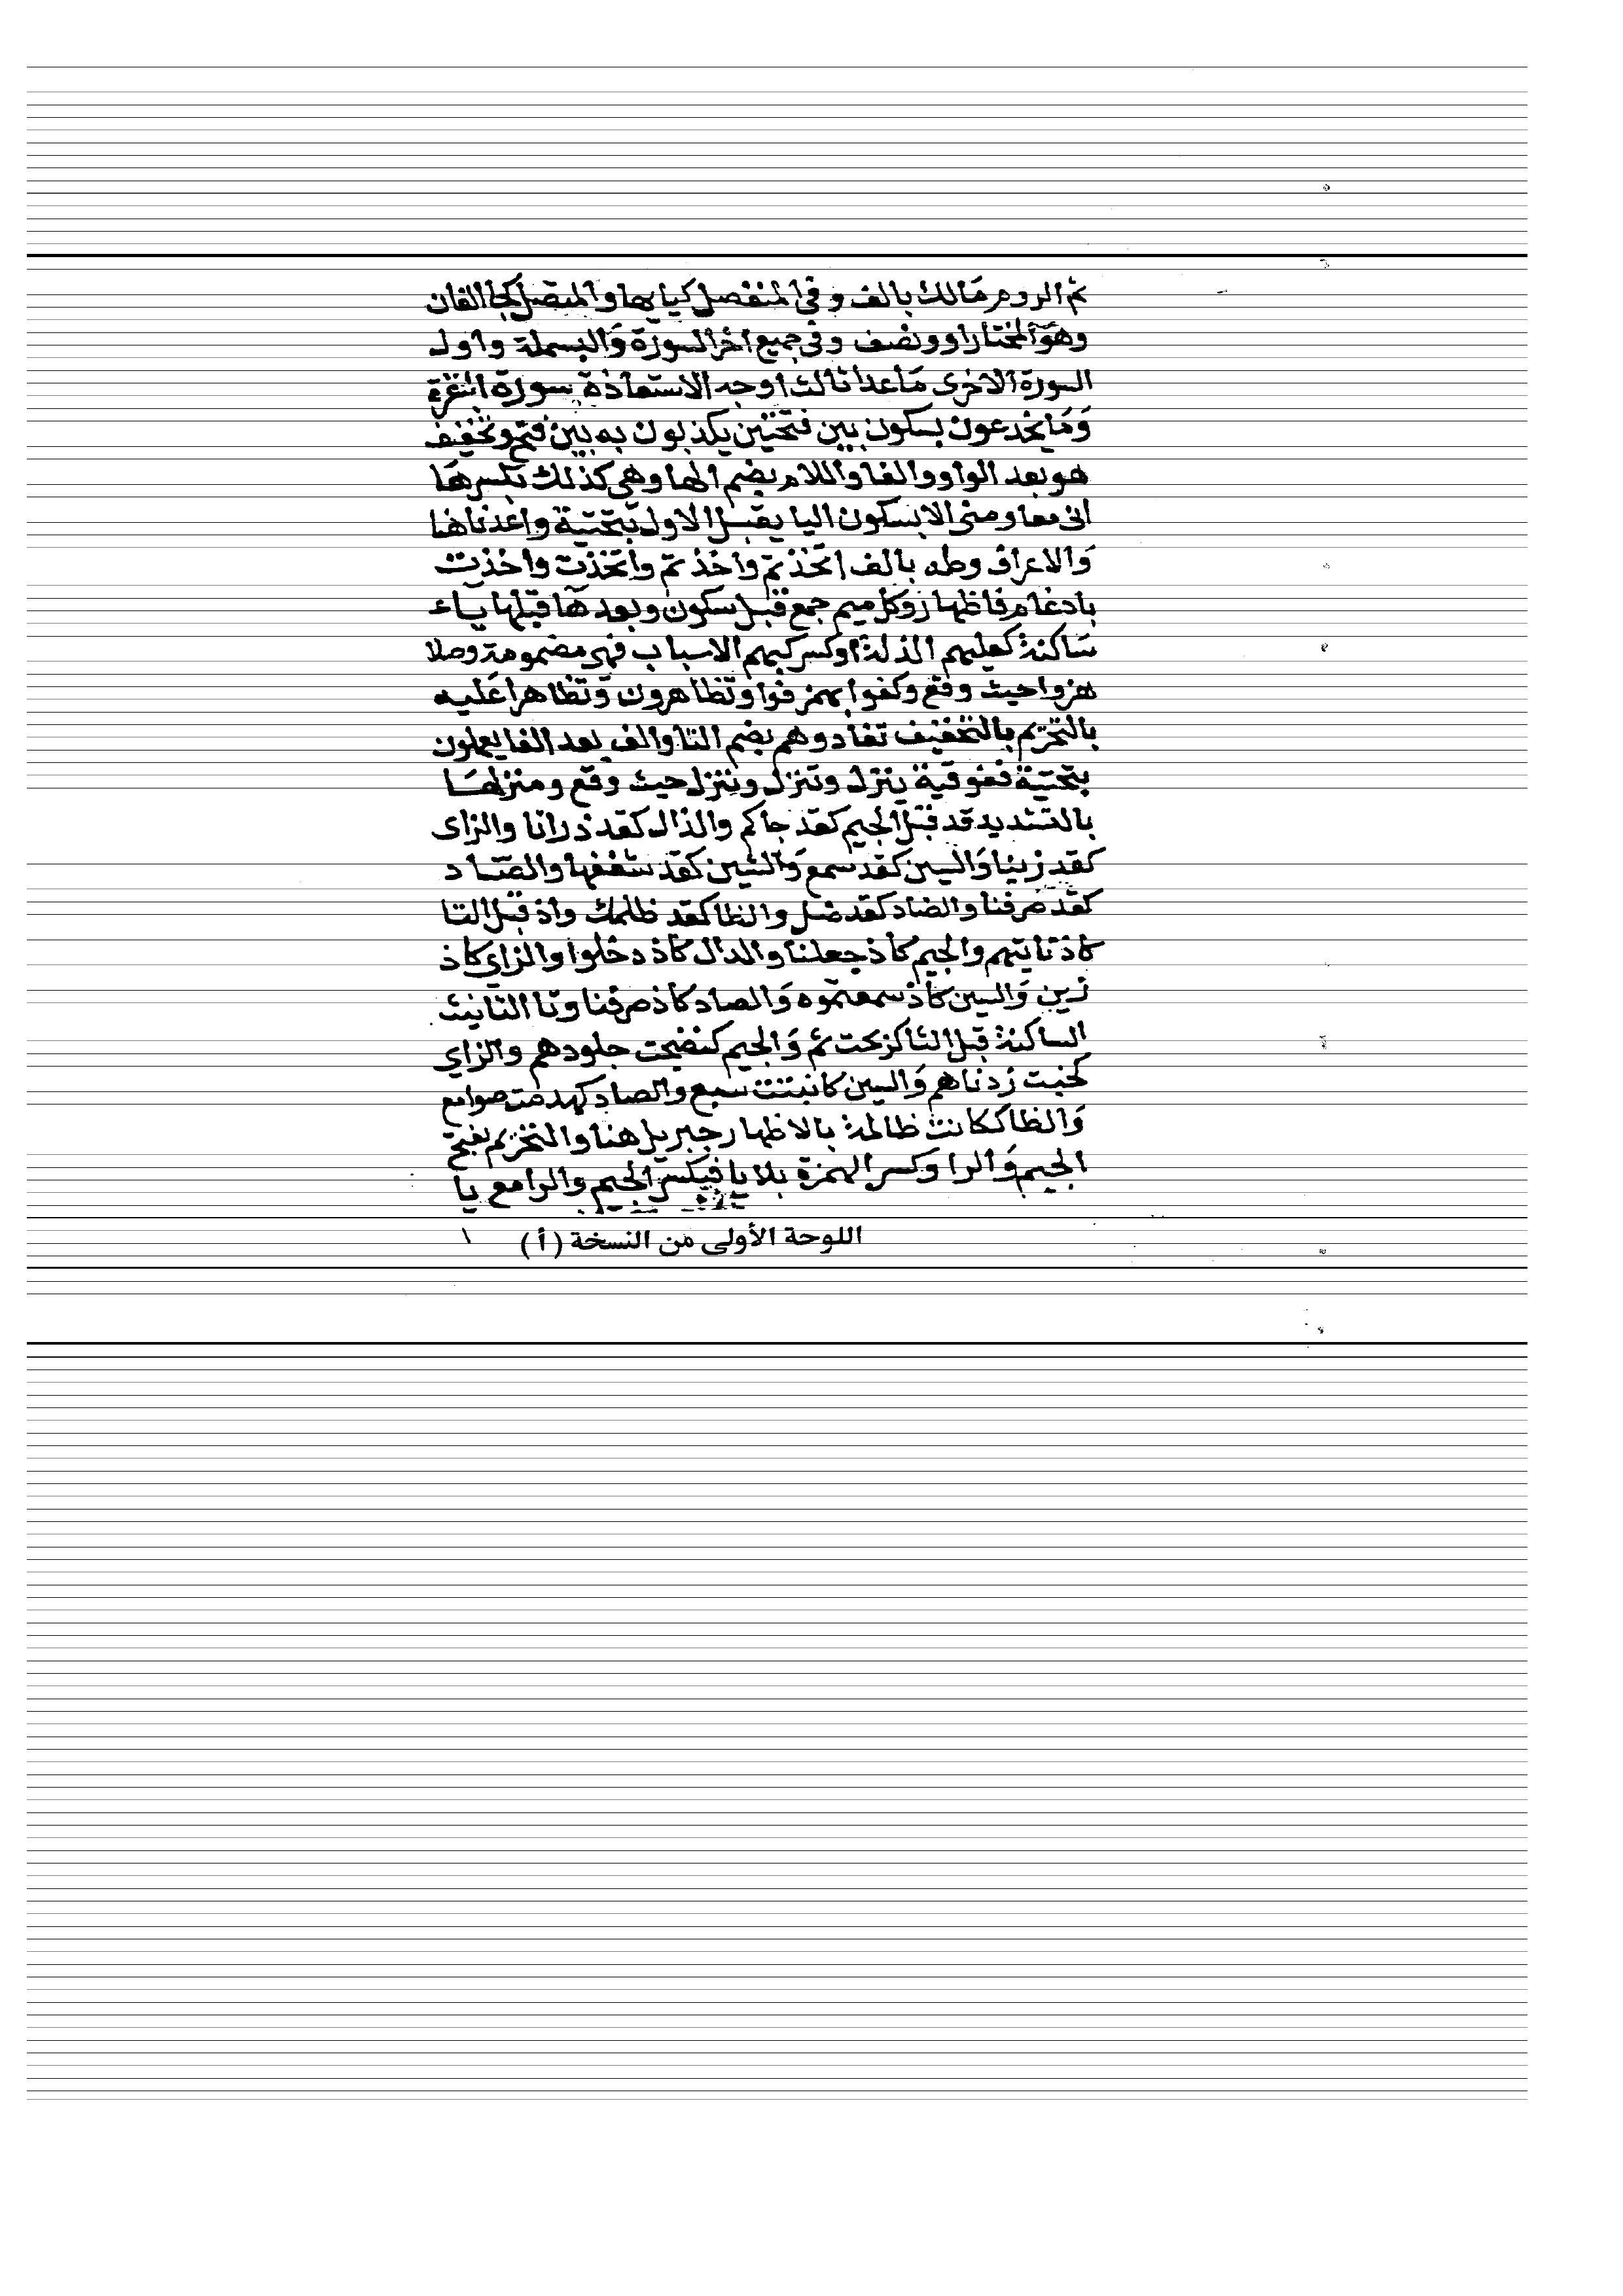 ثم الروم مالك بالف وفي المنفصل كيايها والمتصل كجا الفان
وهو المختار او ونصف وفي جميع اخر السورة والبسملة واول
السورة الاخرى ما عدا ثالث اوجه الاستعاذة سورة البقرة
وما يخدعون بسكون بين فتحتين يكذبون به بين فتح وتخفيف
هو بعد الواو والفا واللام بضم الها وهي كذلك بكسرها
اني معا ومني الا بسكون اليا يقبل الاول بتحتية واعدنا هنا
والاعراف وطه بالف اتخذتم واخذتم واتخذت واخذت
بادغام فاظهار وكل ميم جمع قبل سكون وبعد ها قبلها ياء
ساكنة كعليهم الذلة او كسر كبهم الاسباب فهي مضمومة وصلا
هزوا حيث وقع وكفوا بهمز فواو تظاهرون وتظاهرا عليه
بالتحريم بالتخفيف تفادوهم بضم التا والف بعد الفا يعملون
بتحتية ففوقية ينزل وتنزل وننزل حيث وقع ومنزلها
بالتشديد قد قبل الجيم كقد جاكم والذال كقد ذرانا والزاى
كقد زينا والسين كقد سمع والشين كقد شغفها والصاد
كقد صرفنا والضاد كقد ضل والظا كقد ظلمك واذ قبل التا
كاذ تاتيهم والجيم كاذ جعلنا والدال كاذ دخلوا والزاي كاذ
زين والسين كاذ سمعتموه والصاد كاذ صرفنا وتا التانيث
الساكنة قبل الثا كرحبت ثم والجيم كنضجت جلودهم والزاي
كخبت زدناهم والسين كانبتت سبع والصاد كهدمت صوامع
والظا ككانت ظالمة بالاظهار جبريل هنا والتحريم بفتح
الجيم والرا وكسر الهمزة بلا يا فبكسر الجيم والرا مع يا
اللوحة الأولى من النسخة (أ) ١